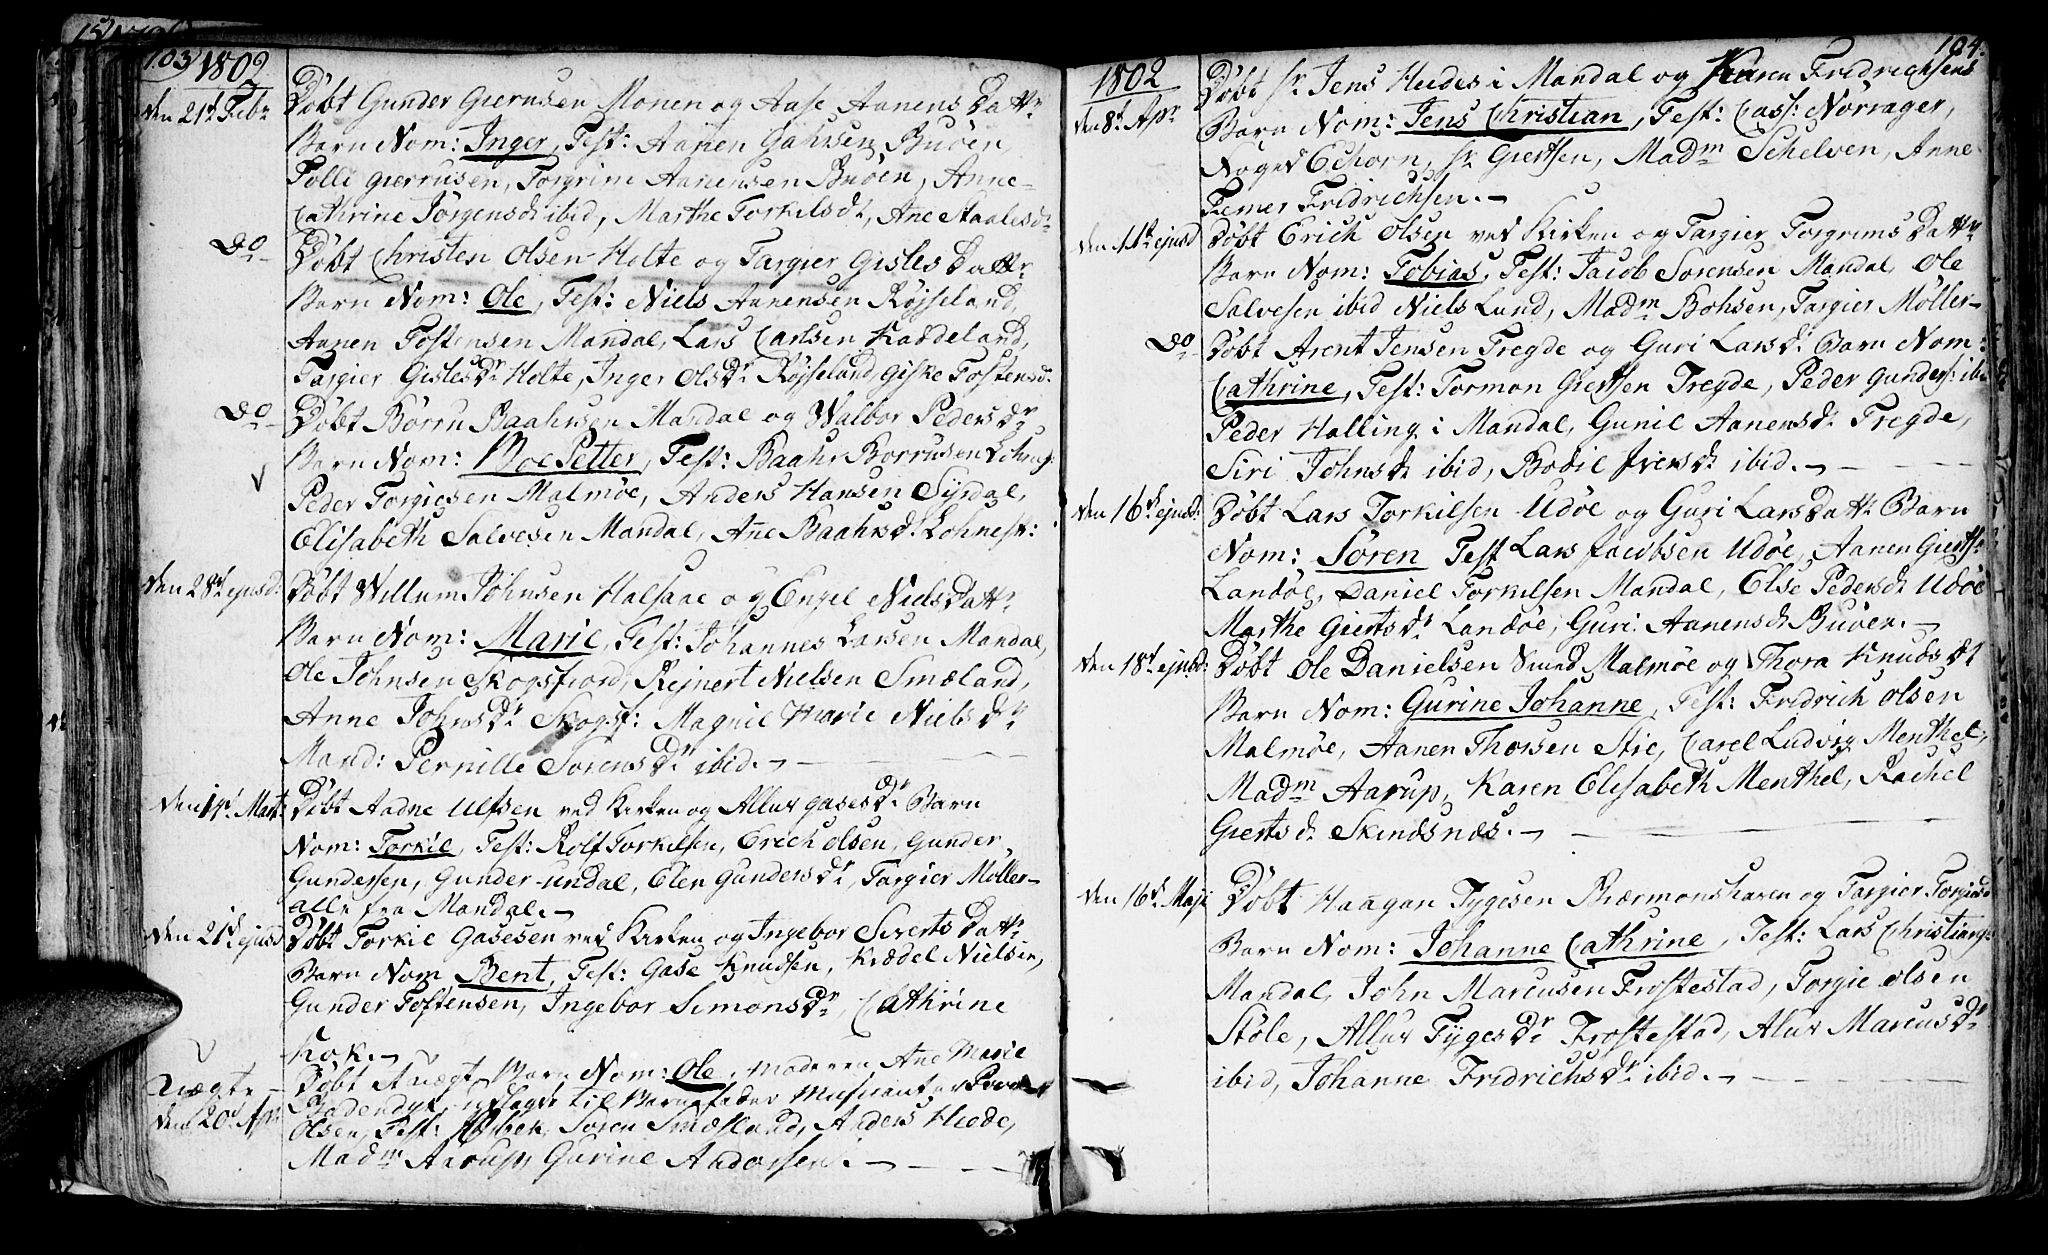 103 1802
den 21d Febr Döbt Gunder Giernsen Monen og Aase Aanens Dattr
Barn Nom: Inger, Test: Aanen Gahrsen Buöen,
Polli gierrusen, Torgrim Aanensen Buöen, Anne
Cathrine Jörgensdr ibid, Marthe Torkelsdr, Ane Staalesdr
Do Döbt Christen Olsen Holte og Targier Gisles Dattr
Barn Nom: Ole, Test: Niels Aanensen Röjseland,
Aanen Tostensen Mandal, Lars Carlsen Kaddeland,
Targier Gislesdr Holte, Inger Olsdr Röjseland, giske Tostensdr
Do Döbt Börru Baahrsen Mandal og Walbor Pedersdr
Barn Nom: Boe Petter, Test: Baahr Borrusen
Peder Torgiesen Malmöe, Anders Hansen Syrdal,
Elisabeth Salvesen Mandal, Ane Baahrsdr
den 28d ejusd: Döbt Willum Johnsen Halsaae og Engel Niels Dattr
Barn Nom: Marie, Test: Johannes Larsen Mandal,
Ole Johnsen Skogsfiord, Rejnert Nielsen Smæland,
Anne Johnsdr Skogsf: Magnil Marie Nielsdr
Mand: Pernille Sörensdr ibid.
den 14d Mart: Döbt Aadne Ulfsen ved Kirken og Allur gasesdr Barn
Nom: Torkil, Test: Rolf Torkilsen, Erich Olsen, Gunder
Gundersen, Gunder undal, Elen Gundersdr, Targier Möller
alle fra Mandal.
den 21d ejusd Döbt Torkil Gasesen ved Kirken og Ingebor Siverts Dattr
Barn Nom Bent, Test: Gase Knudsen, Krædel Nielsen,
Gunder Tostensen, Ingebor Simonsdr, Cathrine
Kok.
Uægte Döbt et Uægt Barn Nom: Ole, Moderen Ane Marie
den 20d Apr udlagde til Barnefader Musicant
Olsen, Test: Sören Smæsland, Anders Heede,
Madm Aarup, Gurine Andersen.
104.
1802
den 8d Apr Döbt Sr Jens Heides i Mandal og Karen Fridrichsens
Barn Nom: Jens Christian, Test: Cass: Nörrager,
Noged Echorn, Sr Giertsen, Madm Schelven, Anne
Femer Fridrichsen.
den 11d ejusd Döbt Erich Olsen ved Kirken og Targier Torgrims Dattr
Barn Nom: Tobias, Test: Jacob Sörensen Mandal, Ole
Salvesen ibid Niels Lund, Madm Bohsen, Targier Möller
Do Döbt Arent Jensen Tregde og Guri Larsdr Barn Nom:
Cathrine, Test: Tormon Giertsen Tregde, Peder Gunders: ibid
Peder Halling i Mandal, Gunil Aanensdr Tregde,
Siri Johnsdr ibid, Bodil Iversdr ibid.
den 16d ejusd: Döbt Lars Torkilsen Udöe og Guri Lars Dattr Barn
Nom: Sören Test Lars Jacobsen Udöe, Aanen Gierts:
Landöe, Daniel Torkilsen Mandal, Else Pedersdr Udöe
Marthe Giertsdr Landöe, Guri Aanensdr Buöen.
den 18d ejusd: Döbt Ole Danielsen Smed Malmöe og Thora Knudsdr
Barn Nom: Gurine Johanne, Test: Fridrich Olsen
Malmöe, Aanen Thorsen Stie, Carel Ludvig Menthel,
Madm Aarup, Karen Elisabeth Menthel, Rachel
Giertsdr Skindsnæs.
den 16d Maji Döbt Haagan Tygesen Biærmonshaven og Targier Torgiesd
Barn Nom: Johanne Cathrine, Test: Lars Christians:
Mandal, John Marcusen Frostestad, Torgie Olsen
Stöle, Allur Tygesdr Frostestad, Alur Marcusdr
ibid, Johanne Fridrichsdr ibid.